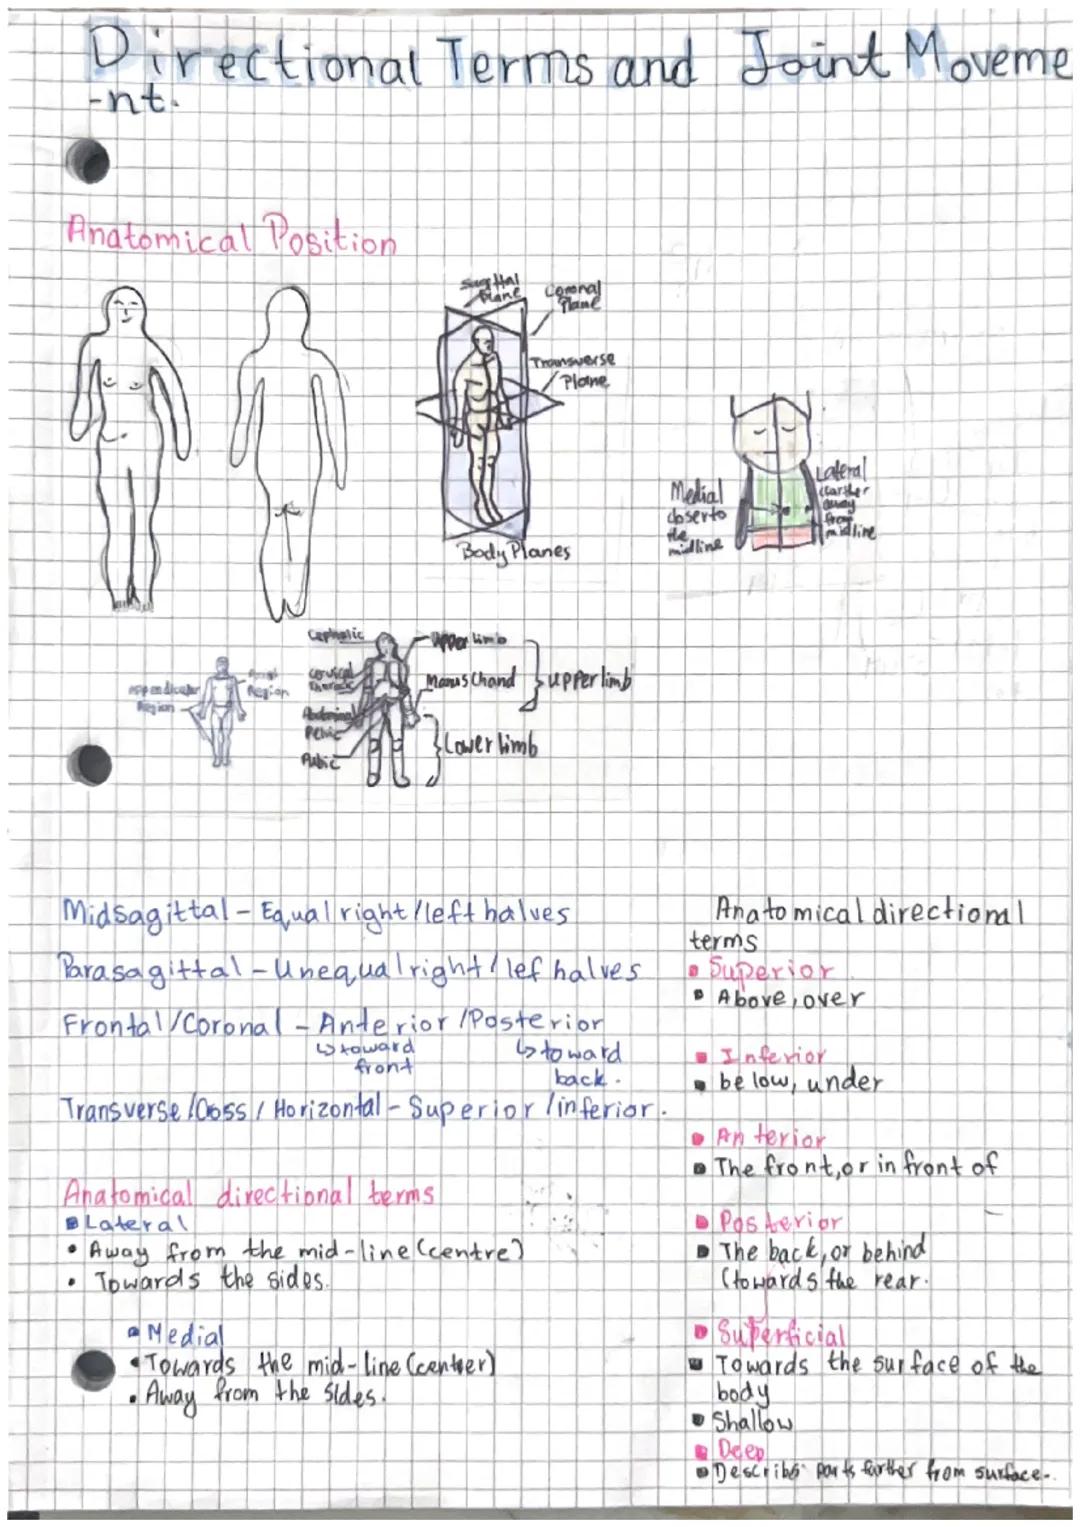 Directional Terms and Joint Moveme
-nt.
Anatomical Position
Sagittal
Plane
Coronal
Plane
Transverse
Plane
Body Planes
Medial
closer to
the
midline
Lateral
farther
away
from
midline
Appendicular
Region
Axial
Region
Cephalic
Cervical
Thoracic
Abdominal
Pelvic
Pubic
Upper limb
Manus Chand
upper limb
Lower limb
Midsagittal - Equal right/left halves
Parasagittal - Unequal right/lef halves
Frontal/Coronal - Anterior/Posterior
↳ toward
front
↳ toward
back.
Transverse/Cross/Horizontal - Superior/inferior.
Anatomical directional terms
Lateral
• Away from the mid-line (centre)
• Towards the sides.
Medial
• Towards the mid-line (center)
• Away from the sides.
Anatomical directional
terms
Superior
Above, over
Inferior
below, under
Anterior
The front, or in front of
Posterior
The back, or behind
(towards the rear.
Superficial
Towards the surface of the
body
Shallow
Deep
Describs parts farther from surface.